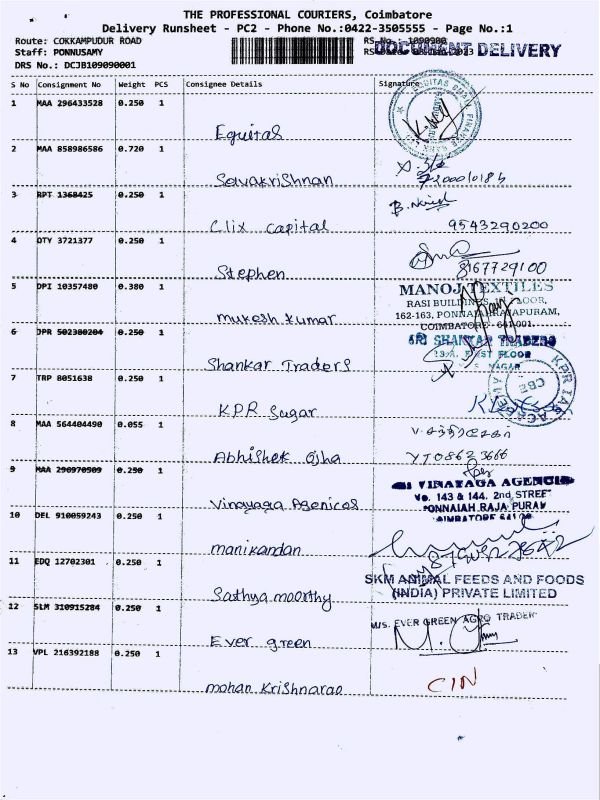 THE PROFESSIONAL COURIERS, Coimbatore
Delivery Runsheet - PC2 - Phone No.:0422-3505555 - Page No.:1
Route: COKKAMPUDUR ROAD
DOCUMENT DELIVERY
Staff: PONNUSAMY
DRS No.: DCJB109090001
S No Consignment No Weight PCS Consignee Details Signature
1 MAA 296433528 0.250 1
Equitas
2 MAA 858986586 0.720 1
Selvakrishnan
3 RPT 1368425 0.250 1
Clix capital 9543290200
4 OTY 3721377 0.250 1
Stephen 8167729100
5 DPI 10357480 0.380 1 MANOJ TEXTILES
RASI BUILDINGS, FLOOR,
162-163, PONNAIAH RAJAPURAM,
mukesh kumar COIMBATORE - 641 001.
6 JPR 502380204 0.250 1 SRI SHANKAR TRADERS
FIRST FLOOR
Shankar Traders NAGAR
7 TRP 8051638 0.250 1
KPR Sugar
8 MAA 564404490 0.055 1
Abhishek Ojha
9 MAA 290970909 0.250 1 SRI VINAYAGA AGENCIES
No. 143 & 144. 2nd STREET
Vinayaga Agenices PONNAIAH RAJA PURAM
10 DEL 910059243 0.250 1
manikandan
11 EDQ 12702301 0.250 1
SKM ANIMAL FEEDS AND FOODS
Sathya moorthy (INDIA) PRIVATE LIMITED
12 SLM 310915284 0.250 1 M/s. EVER GREEN AGRO TRADER
Ever green
13 VPL 216392188 0.250 1
mohan Krishnarao CIN